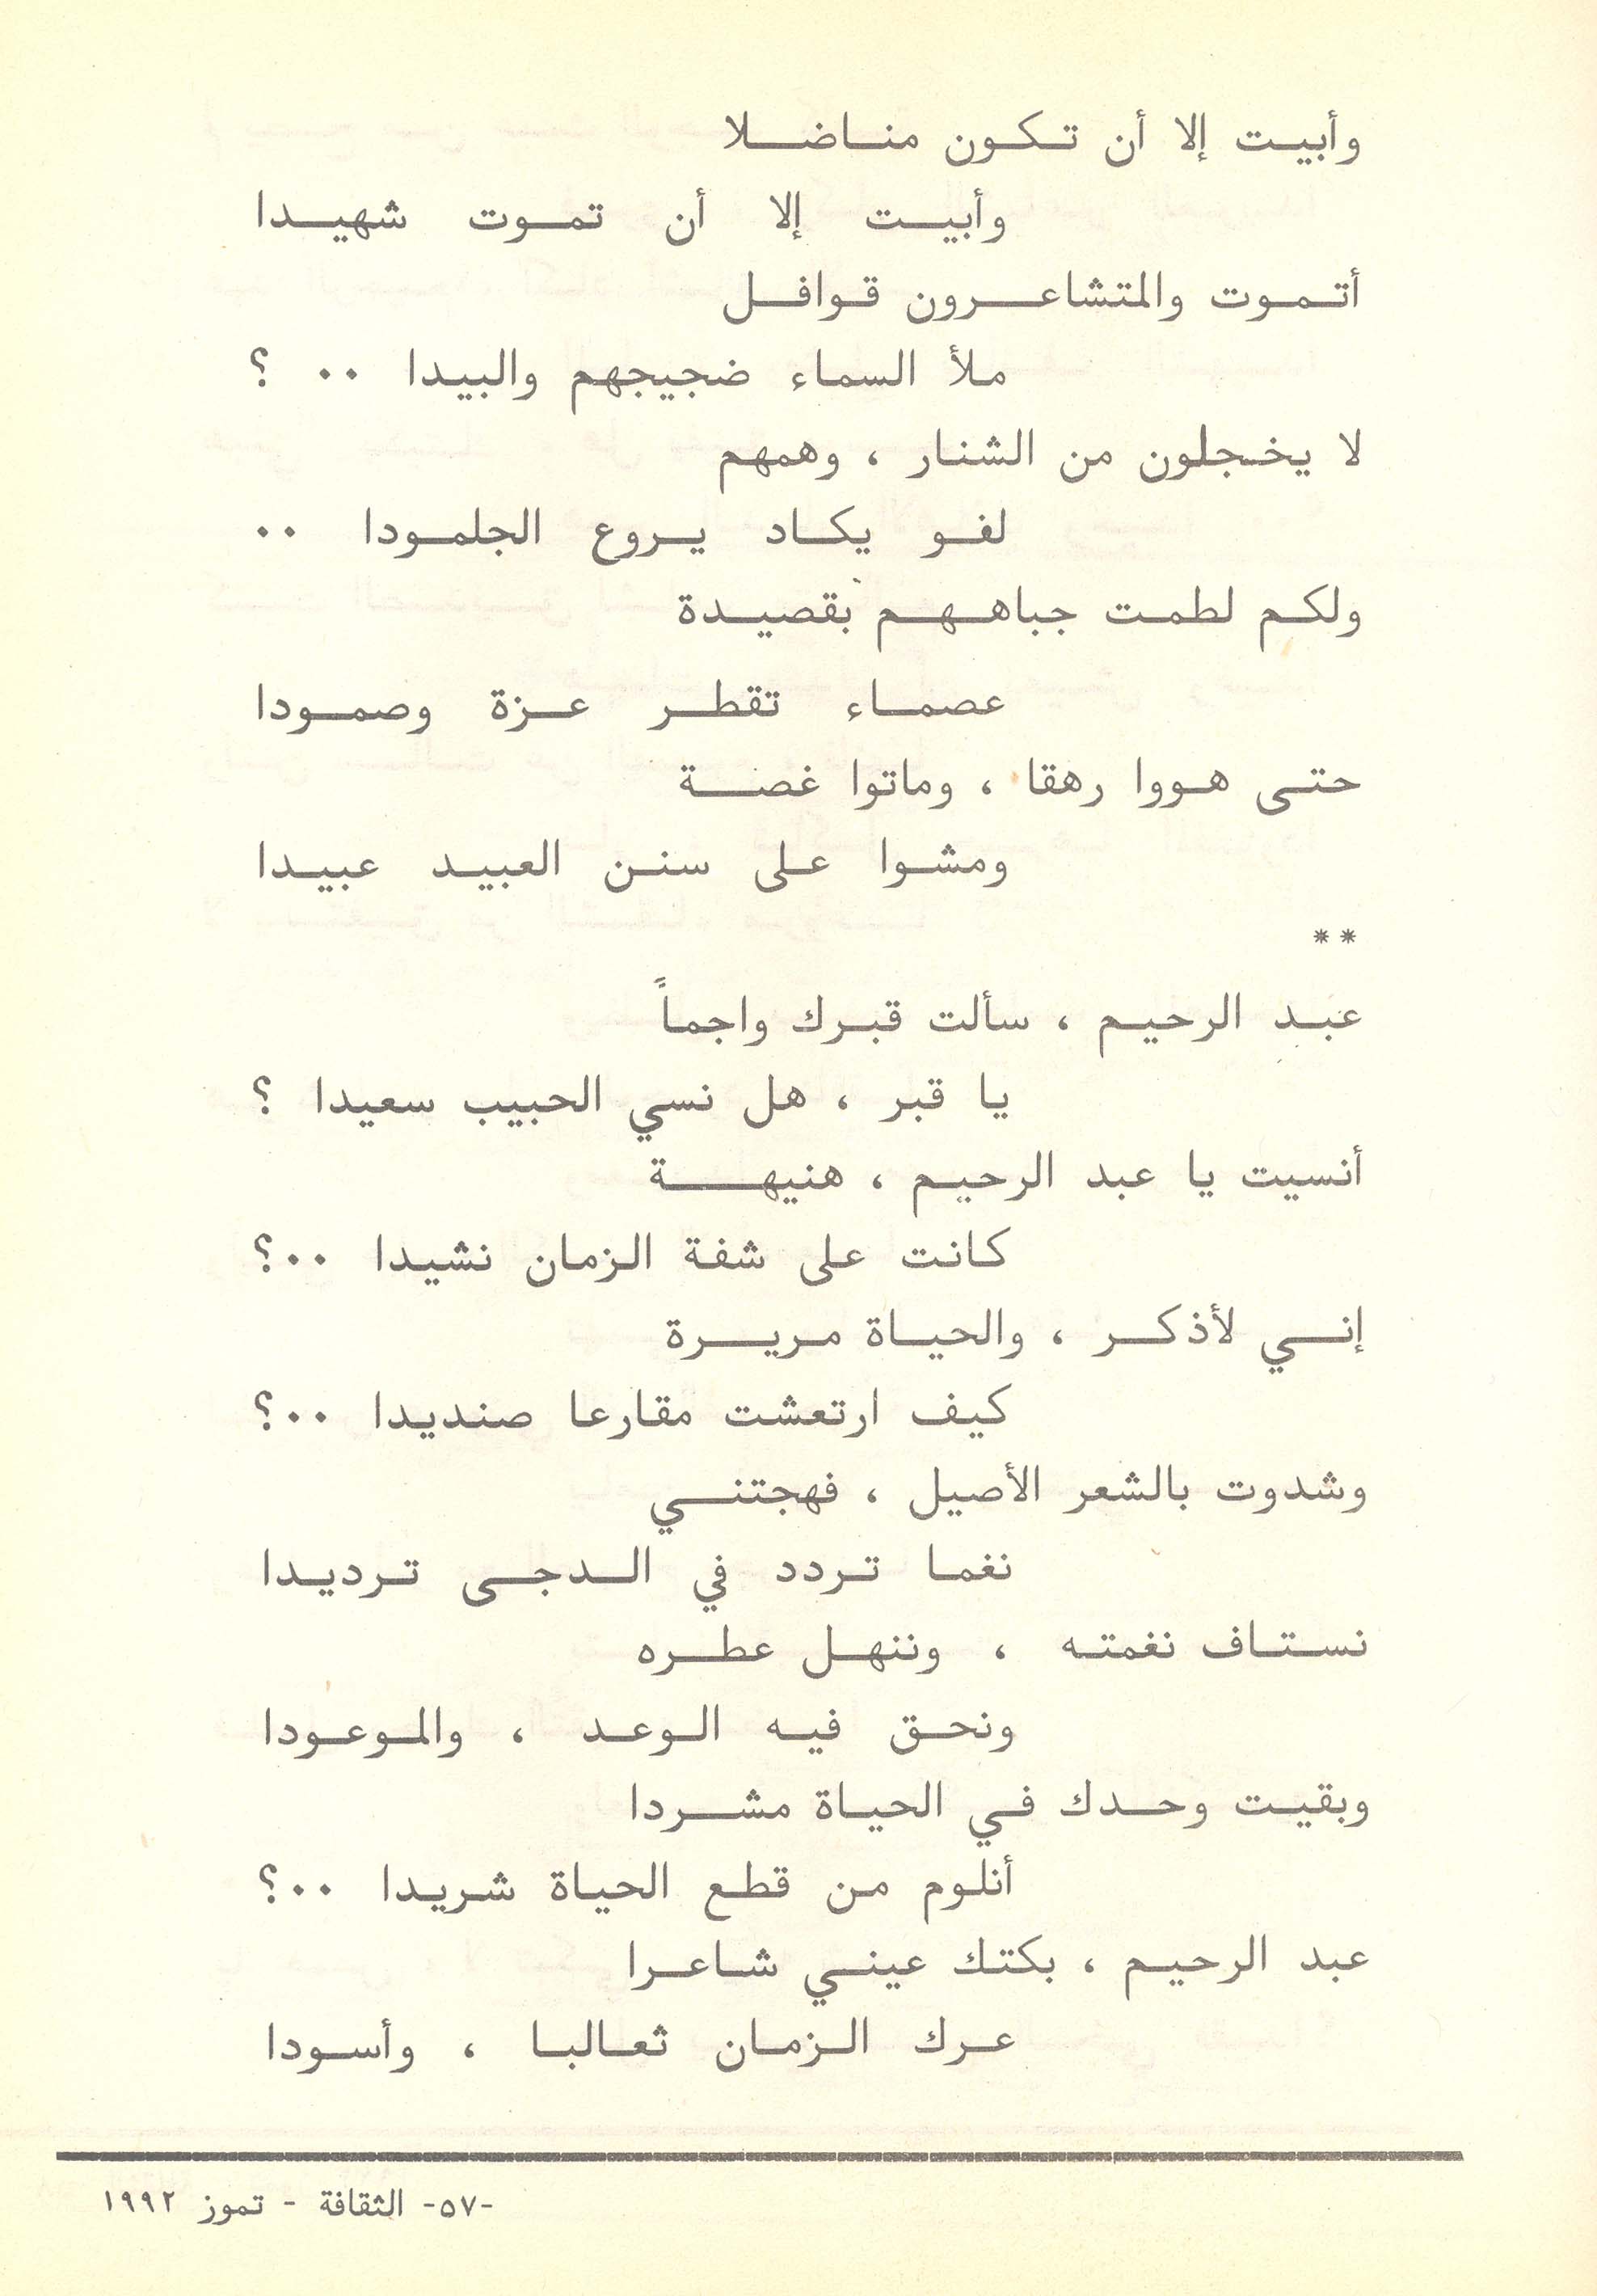 وأبيت إلا أن تكون مناضلا
وأبيت إلا أن تموت شهيدا
أتموت والمتشاعرون قوافل
ملأ السماء ضجيجهم والبيدا ٠٠ ؟
لا يخجلون من الشنار ، وهمهم
لغو يكاد يروع الجلمودا ٠٠
ولكم لطمت جباههم بقصيدة
عصماء تقطر عزة وصمودا
حتى هووا رهقا ، وماتوا غصة
ومشوا على سنن العبيد عبيدا
**
عبد الرحيم ، سألت قبرك واجماً
يا قبر ، هل نسي الحبيب سعيدا ؟
أنسيت يا عبد الرحيم ، هنيهة
كانت على شفة الزمان نشيدا ٠٠؟
إني لأذكر ، والحياة مريرة
كيف ارتعشت مقارعا صنديدا ٠٠؟
وشدوت بالشعر الأصيل ، فهجتني
نغما تردد في الدجى ترديدا
نستاف نغمته ، وننهل عطره
ونحق فيه الوعد ، والموعودا
وبقيت وحدك في الحياة مشردا
أنلوم من قطع الحياة شريدا ٠٠؟
عبد الرحيم ، بكتك عيني شاعرا
عرك الزمان ثعالبا ، وأسودا
-٥٧- الثقافة - تموز ١٩٩٢